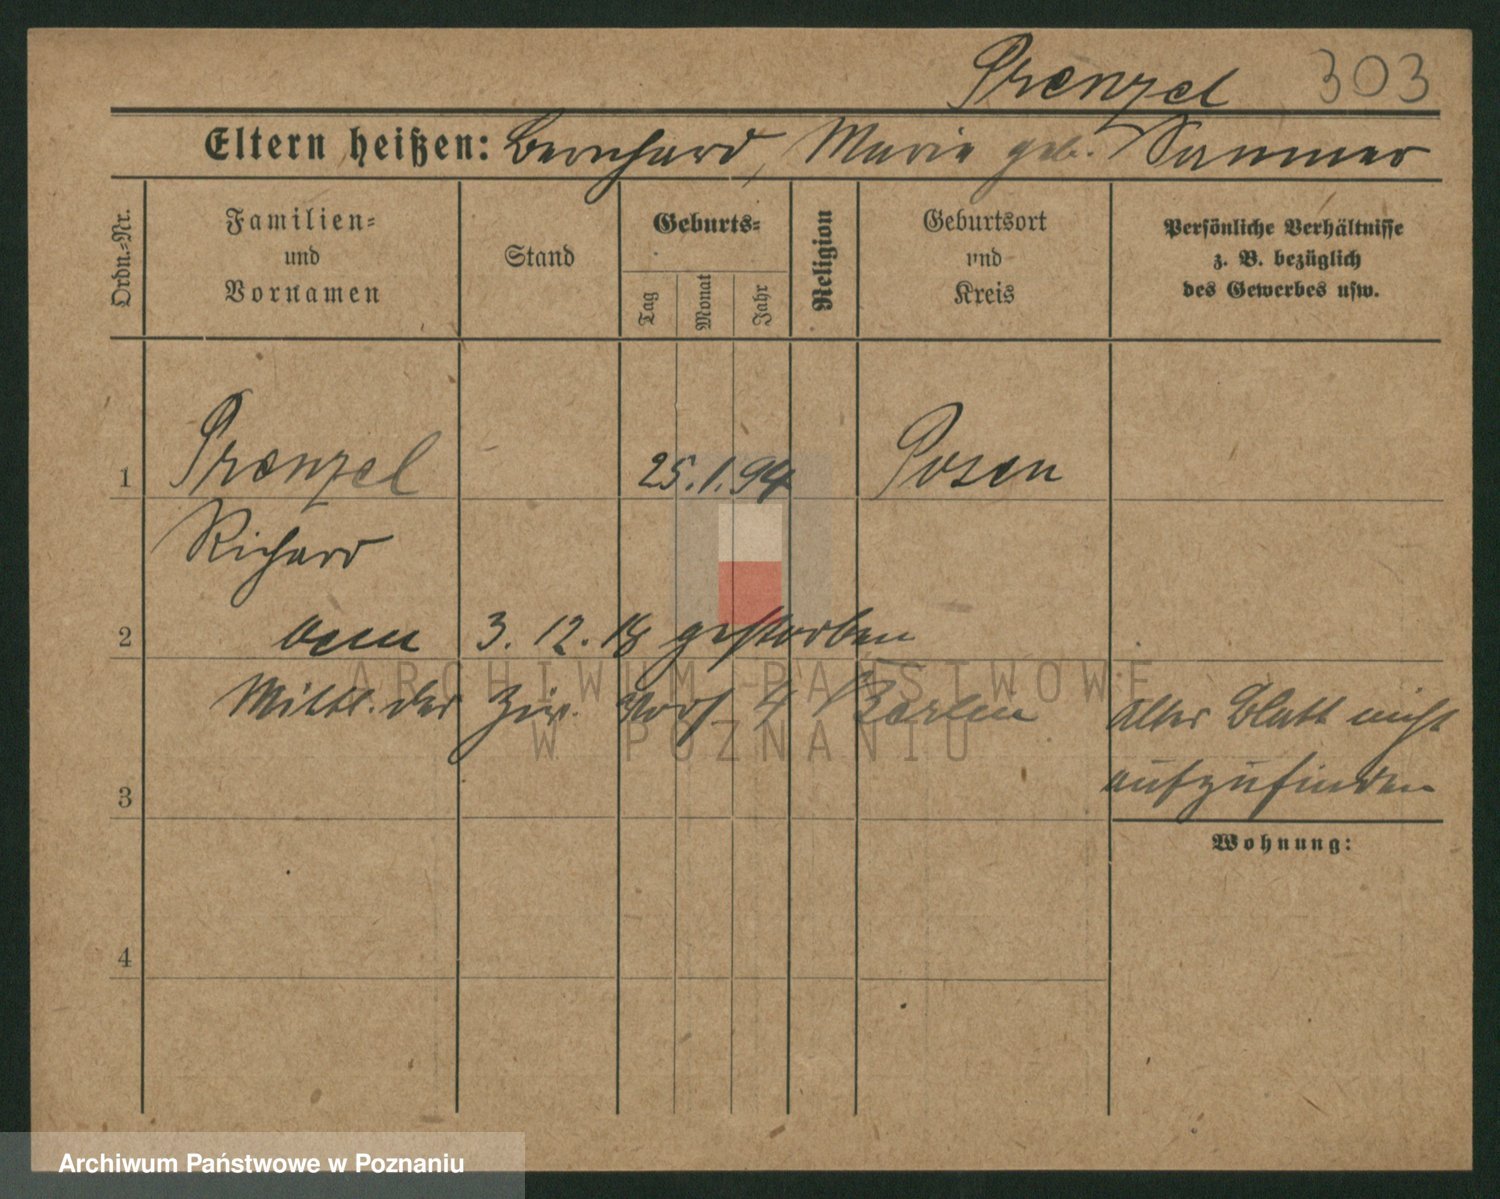 Prenzel 303
Eltern heißen: Bernhard, Marie geb. Sammer
Ordn.-Nr.
Familien-
und
Vornamen
Stand
Geburts-
Tag
Monat
Jahr
Religion
Geburtsort
und
Kreis
Persönliche Verhältnisse
z. B. bezüglich
des Gewerbes usw.
1 Prenzel 25.1.94 Posen
Richard
2 3.12.18 gestorben
ARCHIWUM PAŃSTWOWE
Mittl. der Berlin altes Blatt nicht
W POZNANIU
3 aufzufinden
Wohnung:
4
Archiwum Państwowe w Poznaniu